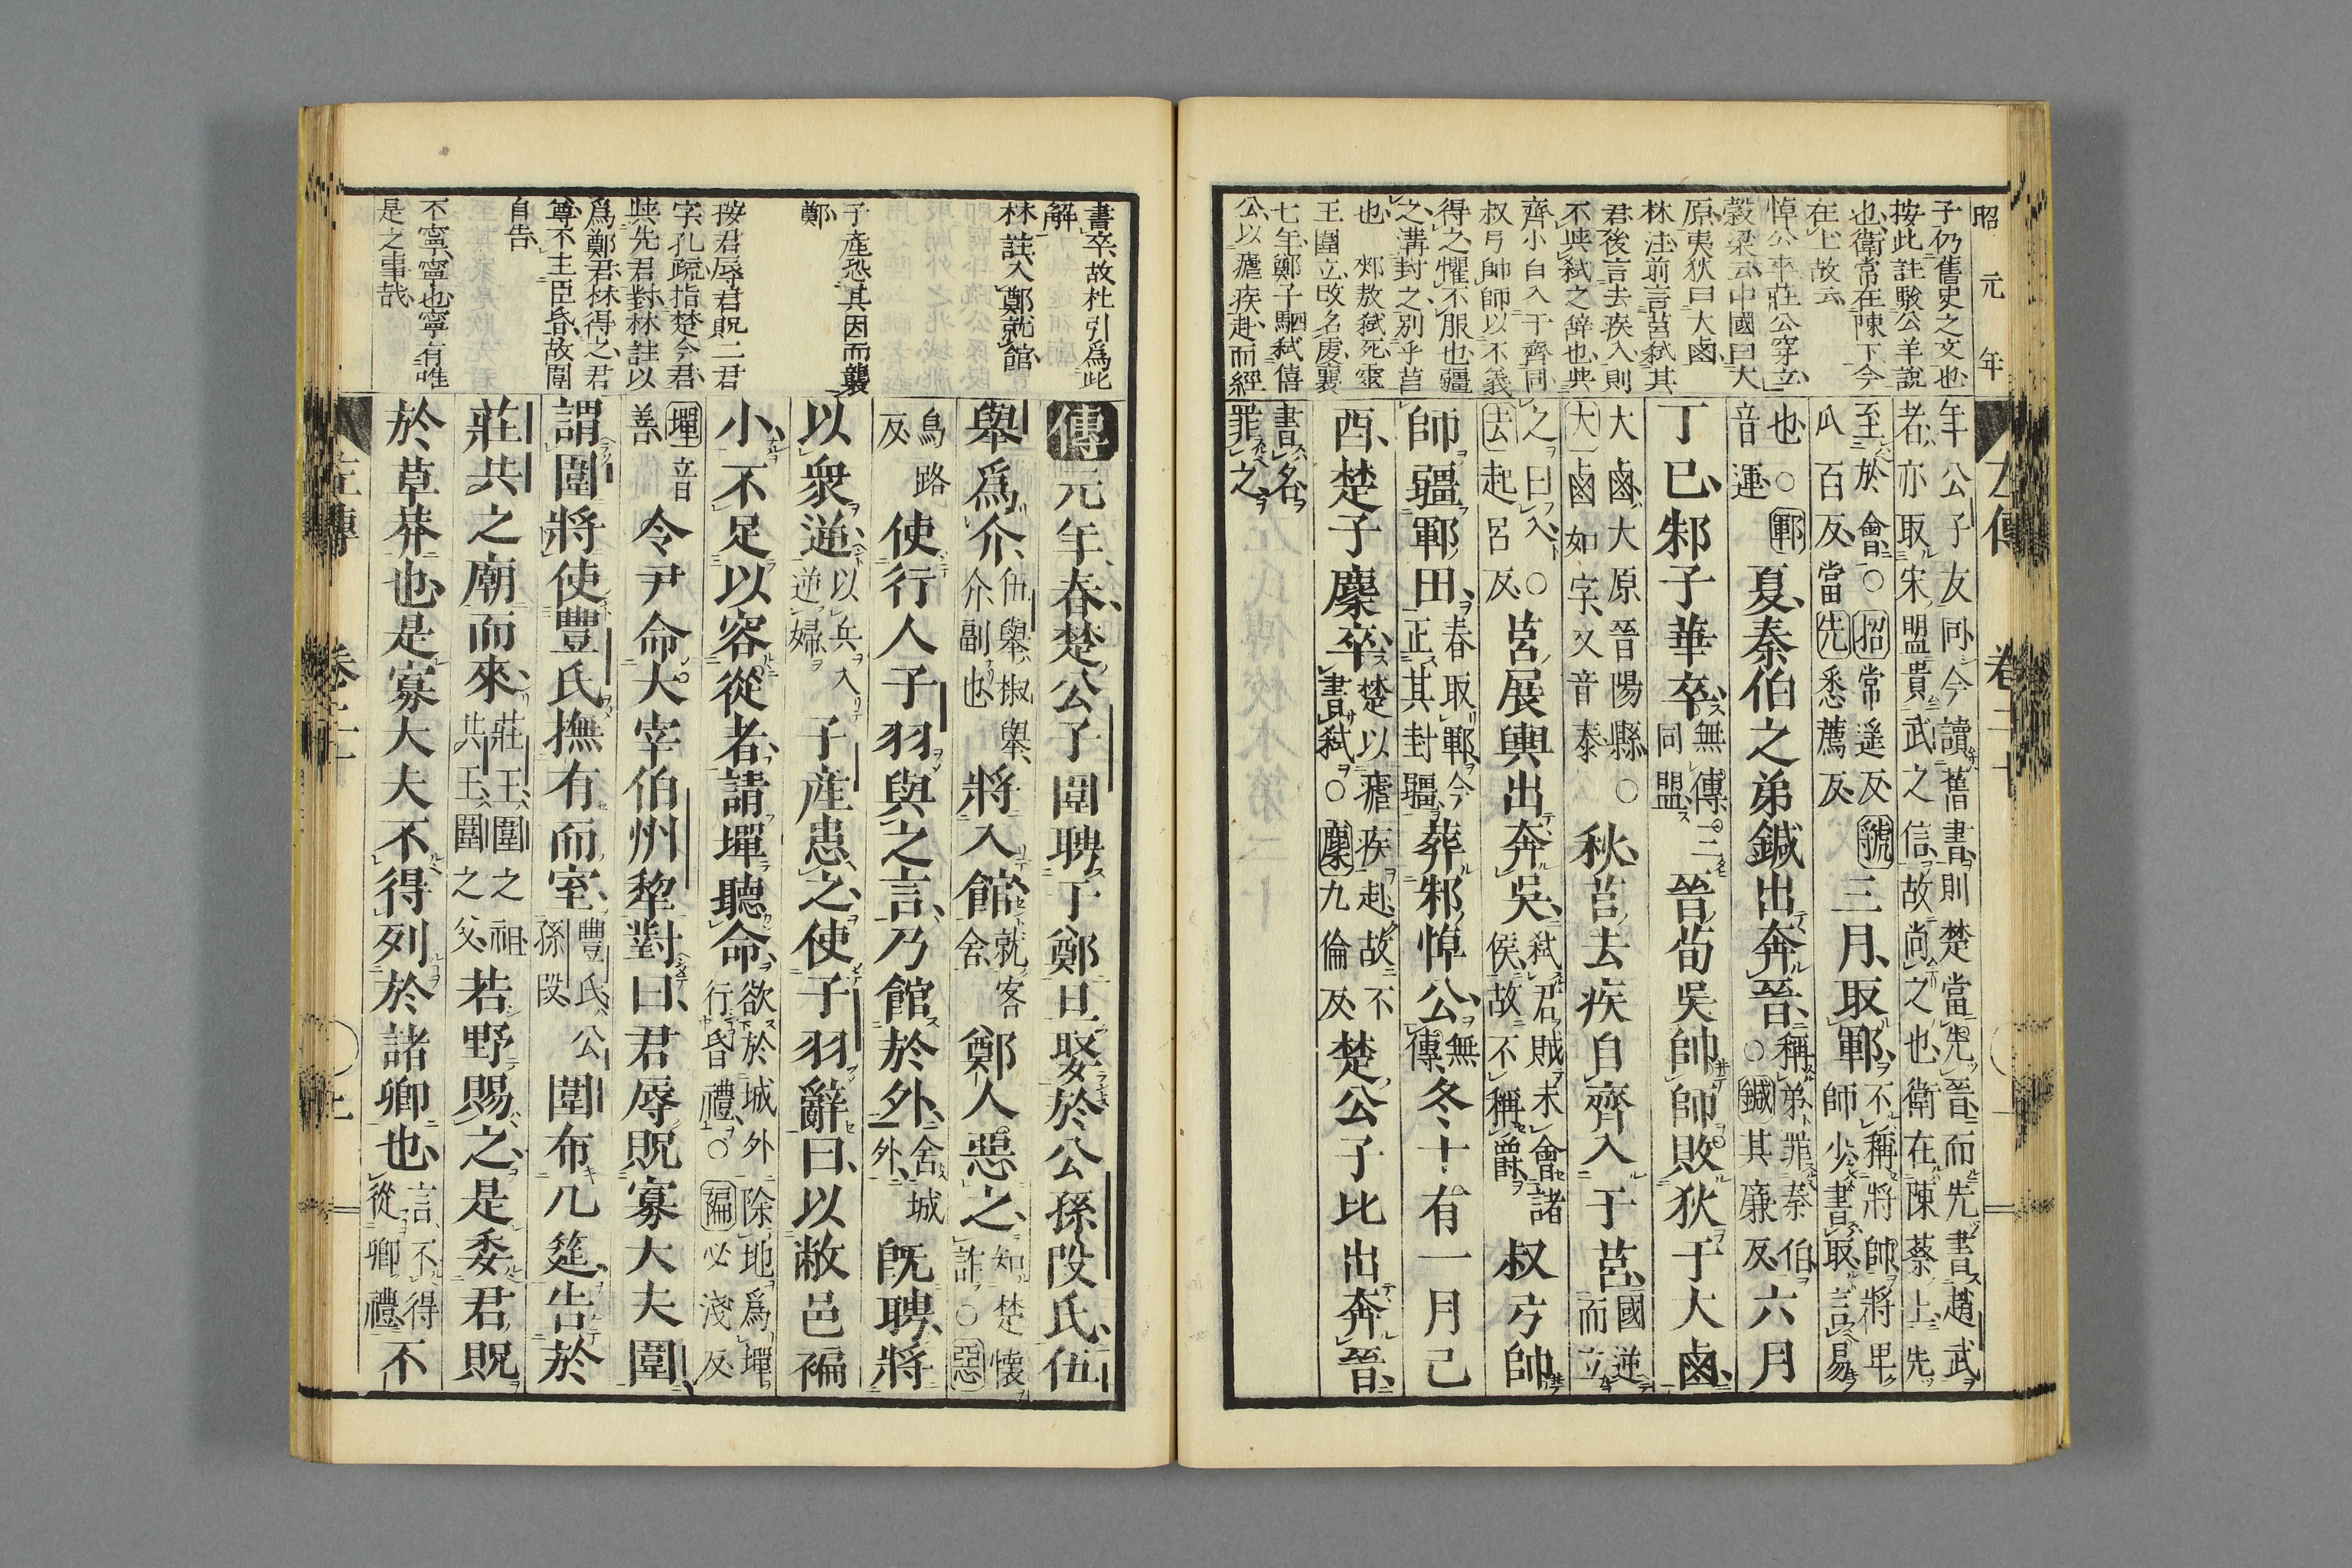 昭元年
子仍舊史之文也
按此註駁公羊說
也衛常在陳下今
在上故云
悼公平莊公穿立
穀梁云中國曰大
原夷狄曰大鹵
林注前言莒弒其
君後言去疾入則
不與弒之辭也與
齊小白入于齊同
叔弓帥師以不義
得之懼不服也疆
之溝封之別乎莒
也 郟敖弒死靈
王圍立改名虔襄
七年鄭子駟弒僖
公以瘧疾赴而經
左傳 卷二十
年公子友同今讀舊書則楚當先晉而先書趙武
者亦取宋盟貴武之信故尚之也衛在陳蔡上先
至於會○招常遙反虢
瓜百反當先悉薦反
三月取鄆
不稱將帥將卑
師少書取言易
也○鄆
音運
夏秦伯之弟鍼出奔晉
稱弟罪秦伯
○鍼其廉反
六月
丁巳邾子華卒
無傳三
同盟
晉荀吳帥師敗狄于大鹵
大鹵大原晉陽縣○
大鹵如字又音泰
秋莒去疾自齊入于莒
國逆
而立
之曰入○
去起呂反
莒展輿出奔吳
弒君賊未會諸
侯故不稱爵
叔弓帥
師疆鄆田
春取鄆今
正其封疆
葬邾悼公
無
傳
冬十有一月己
酉楚子麇卒
楚以瘧疾赴故不
書弒○麇九倫反
楚公子比出奔晉
書名
罪之
書卒故杜引爲此
解
林註入鄭就館
子產恐其因而襲
鄭
按君辱君貺二君
字孔疏指楚今君
與先君對林註以
爲鄭君林得之君
尊不主臣昏故圍
自告
不寧寧也寧有唯
是之事哉
傳元年春楚公子圍聘于鄭且娶於公孫段氏伍
舉爲介
伍舉椒舉
介副也
將入館
就客
舍
鄭人惡之
知楚懷
詐○惡
烏路
反
使行人子羽與之言乃館於外
舍城
外
既聘將
以衆逆
以兵入
逆婦
子產患之使子羽辭曰以敝邑褊
小不足以容從者請墠聽命
欲於城外除地爲墠
行昏禮○褊必淺反
墠音
善
令尹命大宰伯州犂對曰君辱貺寡大夫圍
謂圍將使豐氏撫有而室
豐氏公
孫段
圍布几筵告於
莊共之廟而來
莊王圍之祖
共王圍之父
若野賜之是委君貺
於草莽也是寡大夫不得列於諸卿也
言不得
從卿禮
不
左傳 卷二十 上